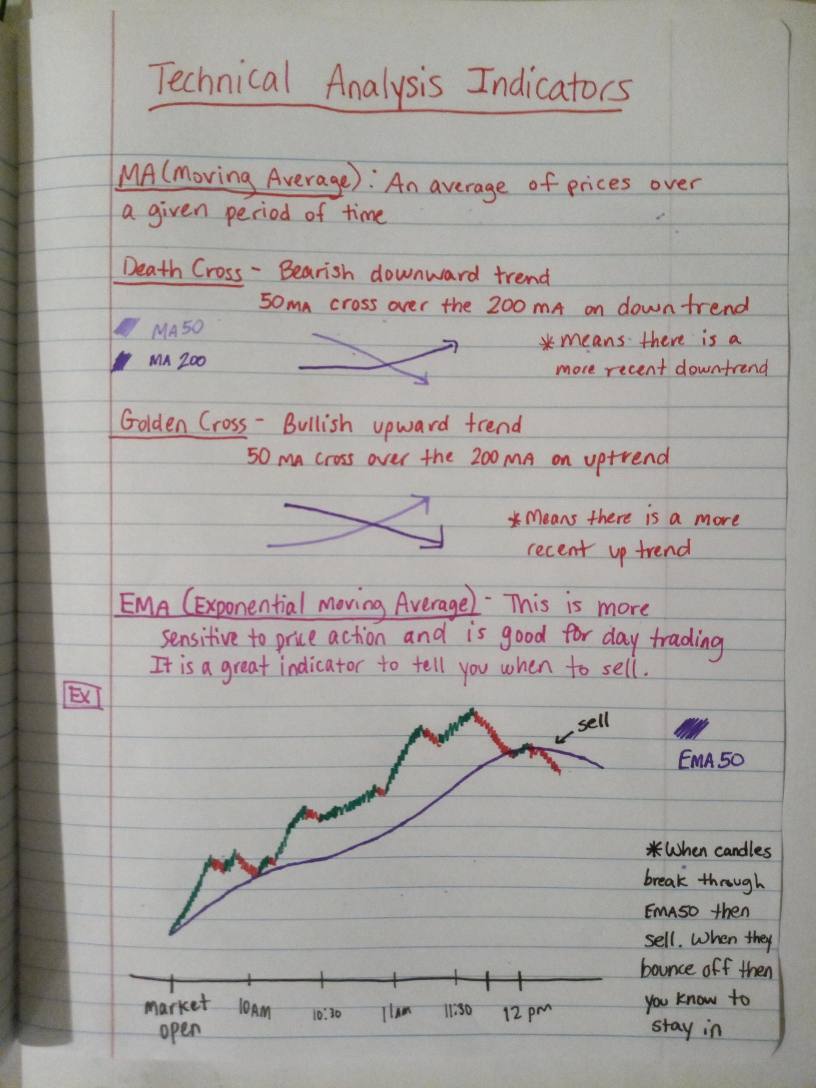 Technical Analysis Indicators
MA (Moving Average): An average of prices over
a given period of time
Death Cross - Bearish downward trend
50MA cross over the 200 MA on down trend
MA50
MA 200
* means there is a
more recent downtrend
Golden Cross - Bullish upward trend
50 MA cross over the 200 MA on uptrend
* Means there is a more
recent up trend
EMA (Exponential Moving Average) - This is more
sensitive to price action and is good for day trading
It is a great indicator to tell you when to sell.
Ex
sell
EMA50
* When candles
break through
EMA50 then
sell. When they
bounce off then
you know to
stay in
market
open
10AM
10:30
11am
11:30
12 pm